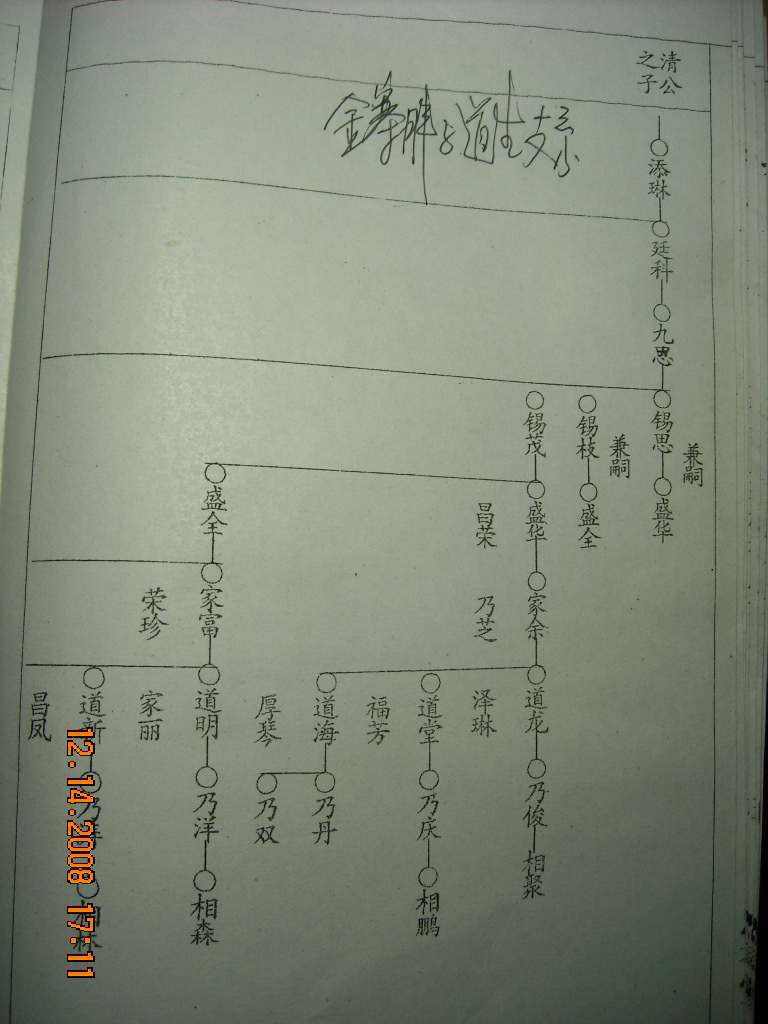 清公
之子
添琳
廷科
九思
锡思
兼嗣
盛华
锡枝
兼嗣
盛全
锡茂
盛华
昌荣
家余
乃芝
道龙
泽琳
乃俊
相聚
道堂
福芳
乃庆
相鹏
道海
厚琴
乃丹
乃双
盛全
家富
荣珍
道明
家丽
乃洋
相森
道新
昌凤
乃
相林
12.14.2008 17:11